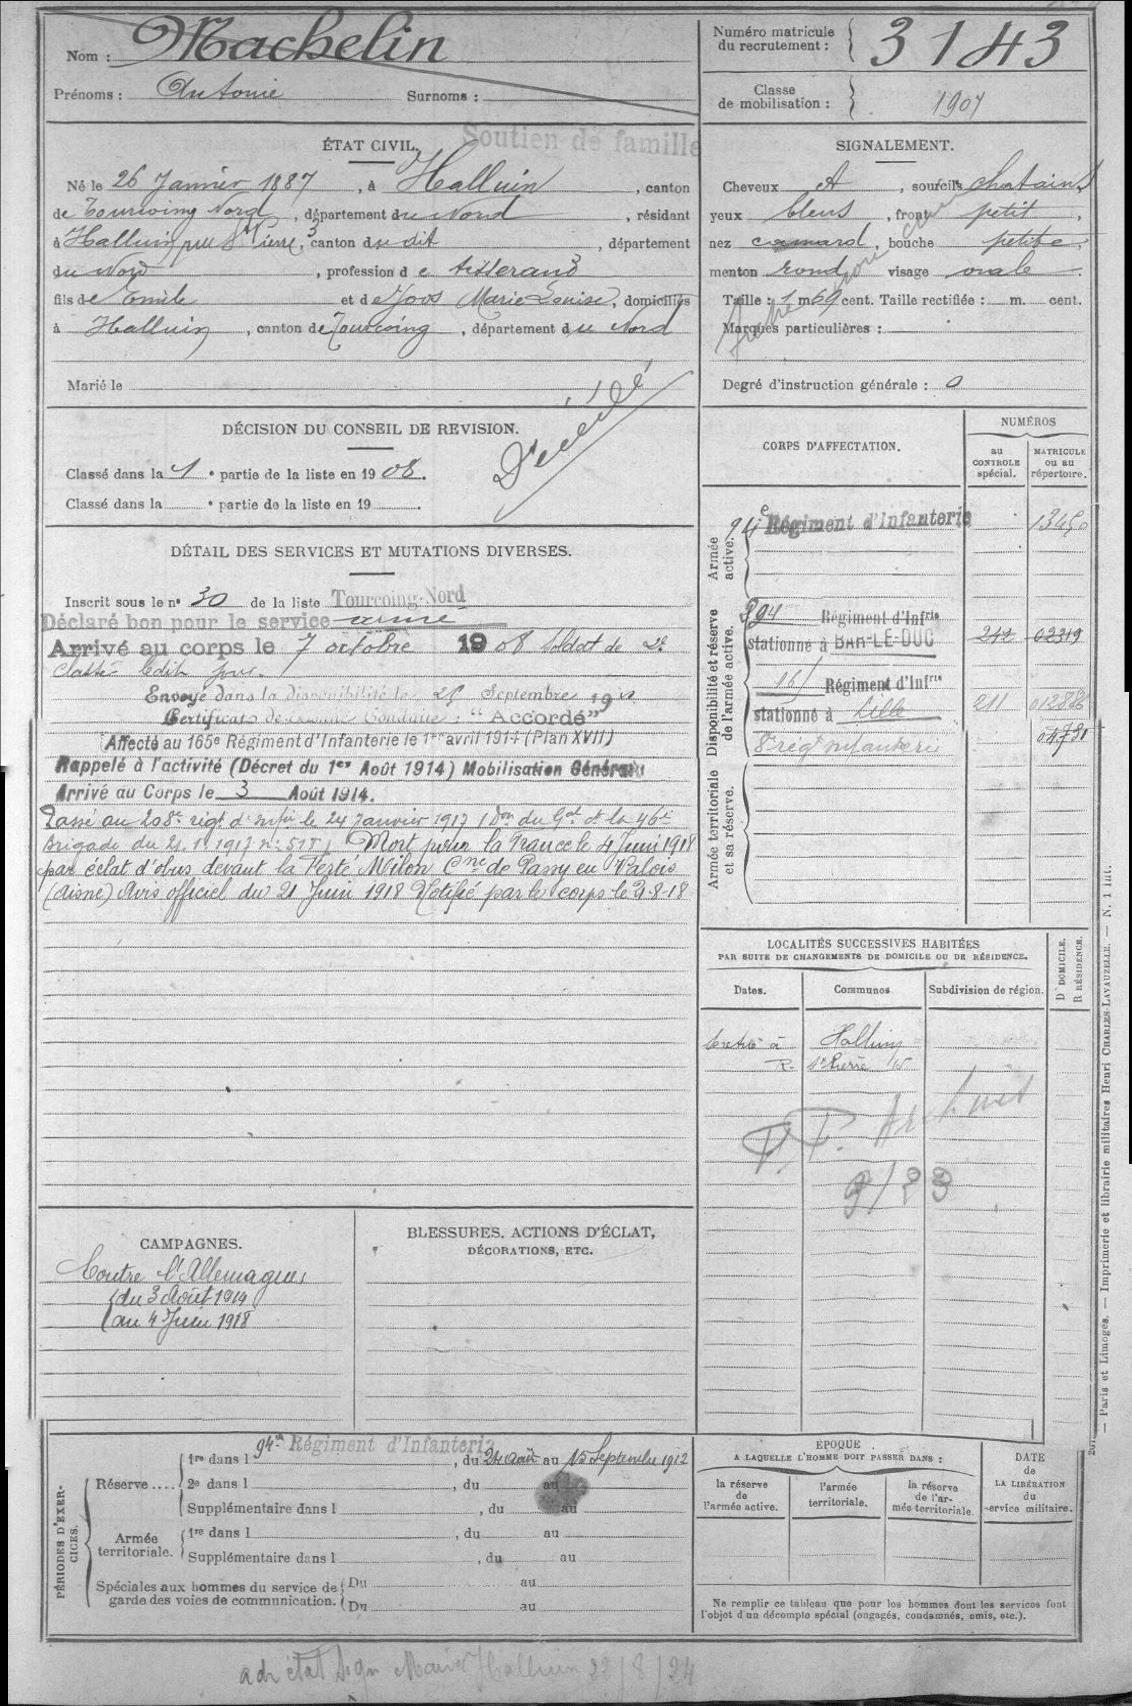 Nom : Machelin
Prénoms : Antonie Surnoms :
Numéro matricule du recrutement : 3143
Classe de mobilisation : 1907
Soutien de famille
ÉTAT CIVIL.
Né le 26 Janvier 1887, à Halluin, canton
de Tourcoing Nord, département du Nord, résidant
à Halluin, rue St Pierre, 3 canton du dit, département
du Nord, profession de tisserand
fils de Emile et de Joos Marie Louise, domiciliés
à Halluin, canton de Tourcoing, département du Nord
Marié le
SIGNALEMENT.
Cheveux et, sourcils chatains
yeux bleus, front petit,
nez camard, bouche petite,
menton rond visage ovale.
Taille : 1 m 59 cent. Taille rectifiée : m. cent.
Marques particulières :
Degré d'instruction générale : 0
DÉCISION DU CONSEIL DE REVISION.
Classé dans la 1e partie de la liste en 1908.
Classé dans la e partie de la liste en 19
Décédé
DÉTAIL DES SERVICES ET MUTATIONS DIVERSES.
Inscrit sous le no 30 de la liste Tourcoing-Nord
Déclaré bon pour le service armé
Arrivé au corps le 7 octobre 1908 Soldat de 2e
Classe ledit jour.
Envoyé dans la disponibilité le 25 Septembre 1910
Certificat de Bonne Conduite : "Accordé"
Affecté au 165e Régiment d'Infanterie le 1er avril 1914 (Plan XVII)
Rappelé à l'activité (Décret du 1er Août 1914) Mobilisation Générale
Arrivé au Corps le 3 Août 1914.
Passé au 208e rigt d'infie le 24 Janvier 1917 (Don du Gal Ct la 46e
brigade du 21.1.1917 no 515) Mort pour la France le 4 Juin 1918
par éclat d'obus devant la Ferté Milon Cne de Passy en Valois
(Aisne) Avis officiel du 21 Juin 1918 Notifié par le corps le 9-8-18
CORPS D'AFFECTATION.
NUMÉROS
au CONTROLE spécial.
MATRICULE ou au répertoire.
Armée active.
94e Régiment d'Infanterie 13450
Disponibilité et réserve de l'armée active.
294 Régiment d'Infrie
stationné à BAR-LE-DUC 242 02319
165 Régiment d'Infrie
stationné à Lille 211 012886
8e régt infanterie 04731
Armée territoriale et sa réserve.
LOCALITÉS SUCCESSIVES HABITÉES
PAR SUITE DE CHANGEMENTS DE DOMICILE OU DE RÉSIDENCE.
Dates. Communes Subdivision de région. D DOMICILE. R RÉSIDENCE.
Halluin
R. St Pierre 15
CAMPAGNES.
Contre l'Allemagne
du 3 Août 1914
au 4 Juin 1918
BLESSURES, ACTIONS D'ÉCLAT,
DÉCORATIONS, ETC.
PÉRIODES D'EXERCICES.
Réserve.... 1re dans l 94e Régiment d'Infanterie, du 24 août au 15 Septembre 1912
2e dans l, du au
Supplémentaire dans l, du au
Armée territoriale. 1re dans l, du au
Supplémentaire dans l, du au
Spéciales aux hommes du service de garde des voies de communication. Du au
Du au
ÉPOQUE
A LAQUELLE L'HOMME DOIT PASSER DANS :
la réserve de l'armée active.
l'armée territoriale.
la réserve de l'armée territoriale.
DATE de LA LIBÉRATION du service militaire.
Ne remplir ce tableau que pour les hommes dont les services font
l'objet d'un décompte spécial (engagés, condamnés, omis, etc.).
Paris et Limoges. — Imprimerie et librairie militaires Henri CHARLES-LAVAUZELLE. — N. 1 int.
Halluin 22/8/24